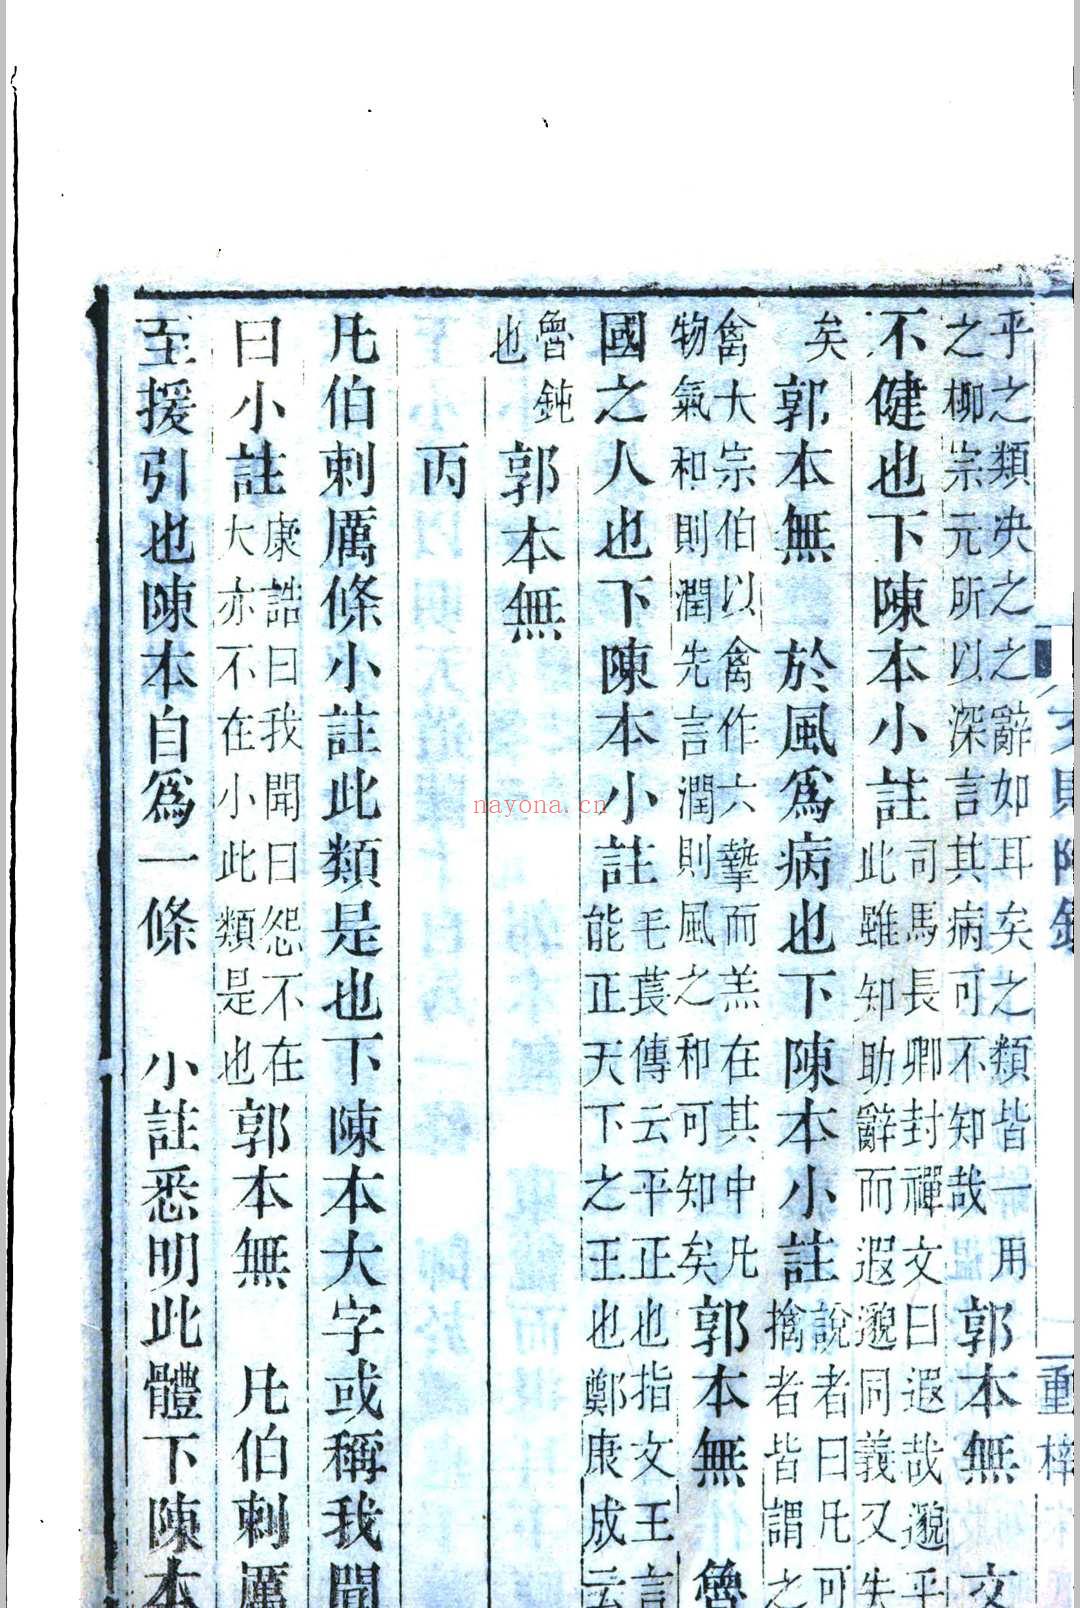 乎之類決之之辭如耳矣之類皆一用
之柳宗元所以深言其病可不知哉
郭本無 文
不健也下陳本小註
司馬長卿封禪文曰遐哉邈乎
此雖知助辭而遐邈同義又失
矣
郭本無 於風爲病也下陳本小註
說者曰凡可
擒者皆謂之
禽大宗伯以禽作六摯而羔在其中凡
物氣和則潤先言潤則風之和可知矣
郭本無 魯
國之人也下陳本小註
毛萇傳云平正也指文王言
能正天下之王也鄭康成云
魯鈍
也
郭本無
丙
凡伯刺厲條小註此類是也下陳本大字或稱我聞
曰小註
康誥曰我聞曰怨不在
大亦不在小此類是也
郭本無 凡伯刺厲
至援引也陳本自爲一條 小註悉明此體下陳本
nayona.cn